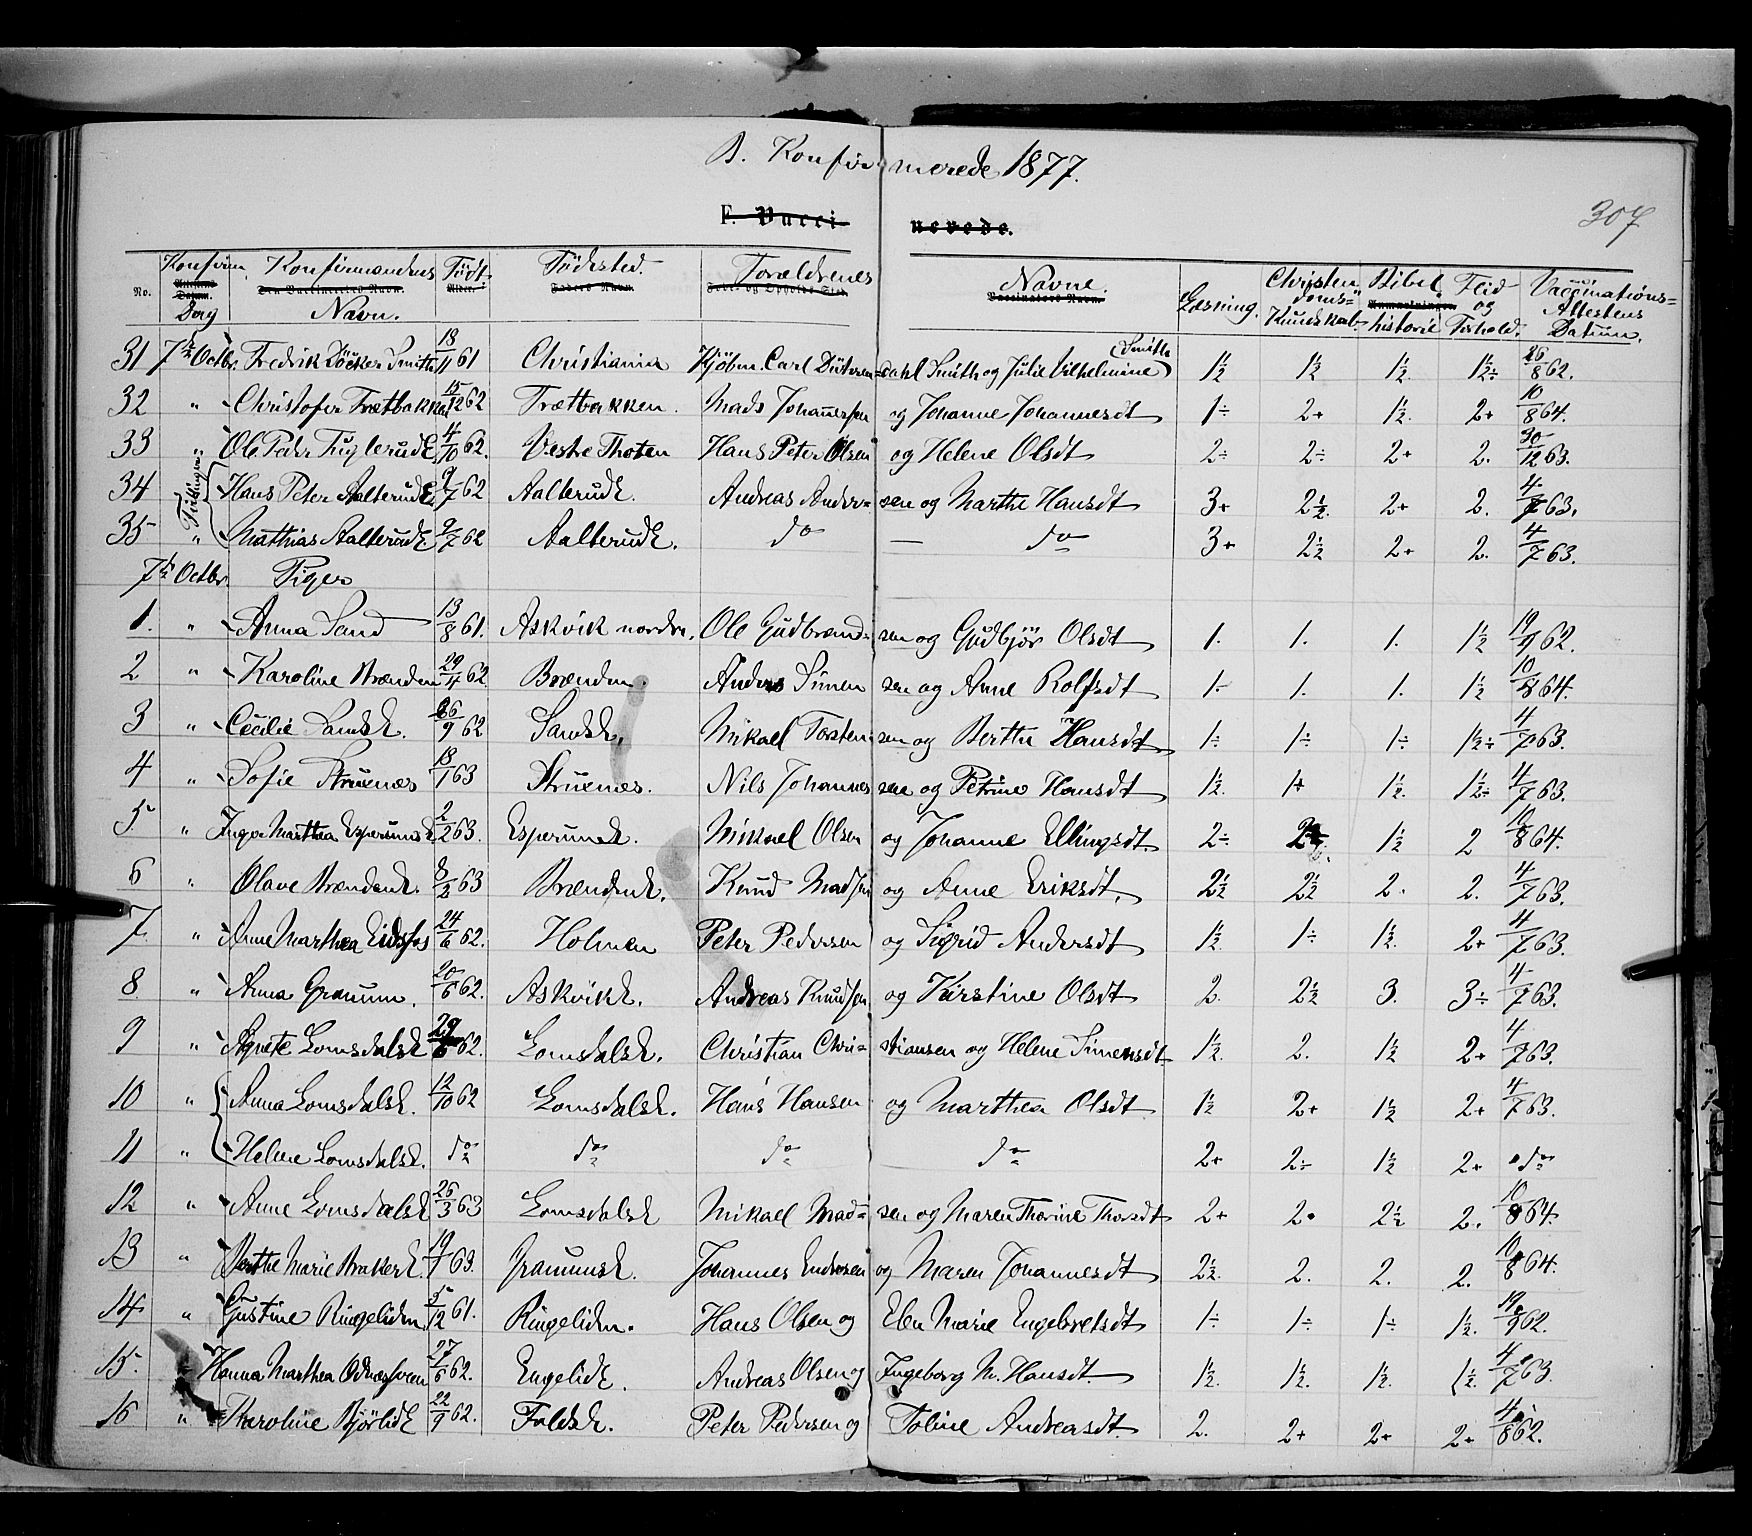 B. Konfirmerede 1877.
F. Vaccinerede.
307
No. Konfirm. Dag Konfirmandens Navn. Født Fødested. Forældrenes Navne. Læsning. Christendoms-Kundskab. Bibelhistorie Flid og Forhold. Vaccinations-Attestens Datum.
31 7de Octbr. Fredrik Döcker Smith 18/11 61 Christiania Kjøbm. Carl Smith og Julie Vilhelmine Smith 1½ 1½ 1½. 1½÷ 26/8 62.
32 " Christofer Frætbakken 15/12 62 Frætbakken. Mads Johannessen og Johanne Johannesdt 1÷ 2+ 1½. 2+ 10/8 64.
33 " Ole Peder FuglerudE. 4/10 62. Vestre Thoten Hans Peter Olsen og Helene Olsdt 2÷ 2÷ 2+ 2. 30/12 63.
34 Tvillinger Hans Peter AalterudE. 9/7 62 AalterudE. Andreas Andersen og Marthe Hansdt 3+ 2½. 2+ 2. 4/7 63.
35 " Mathias AalterudE. 9/7 62 AalterudE. do — do 3+ 2½ 2+ 2. 4/7 63.
7de Octbr. Piger
1. " Anna Sand 13/8 61. Askvik nordre. Ole Gudbrandsen og Gudbjør Olsdt 1. 1. 1. 1½ 19/9 62.
2 " Karoline Brænden 29/4 62 Brænden. Anders Simensen og Anne Rolfsdt 1÷ 1. 1. 1½ 10/8 64.
3 " Cecilie SandsE. 26/9 62 SandsE. Mikael Torstensen og Berthe Hansdt 1÷ 1÷ 1÷ 1½÷ 4/7 63.
4 " Sofie Struenæs 18/1 63 Struenæs. Nils Johannessen og Petrine Hansdt 1½. 1+ 1½. 1½÷ 4/7 63.
5 " Inger Marthea EsperundE 2/2 63. EsperundE. Mikael Olsen og Johanne Ellingsdt. 2÷ 1½ 2 10/8 64.
6 " Olave BrændenE. 8/2 63 BrændenE. Knud Madsen og Anne Eriksdt. 2½ 2½ 2. 2. 4/7 63.
7 " Anne Marthea Eidsfos 24/6 62. Holmen Peter Pedersen og Sigrid Andersdt 1½. 1÷ 1½. 2+ 4/7 63.
8. " Anna Granum. 20/6 62. AskvikE. Andreas Knudsen og Kirstine Olsdt 2. 2½ 3. 3÷ 4/7 63.
9 " Agnete LomsdalsE 62. LomsdalsE. Christian Christiansen og Helene Simensdt 1½. 2. 1½ 2+ 4/7 63.
10 " Anna LomsdalsE. 12/10 62 LomsdalsE. Hans Hansen og Marthea Olsdt 1½ 2+ 1½ 2+ 4/7 63.
11 " Helene LomsdalsE. do do do do 2+ 2÷ 1½ 2+ do
12 " Anne LomsdalsE 26/3 63 LomsdalsE Mikael Madsen og Maren Thorine Thorsdt 2+ 2. 2½ 2. 10/8 64.
13 " Berthe Marie BrakerE. 63. GranumsE. Johannes Endresen og Maren Johannesdt 2½. 2. 2. 2. 10/8 64.
14 " Gustine Ringeliden 5/12 61. Ringeliden. Hans Olsen og Elen Marie Engebretsdt 1÷ 1÷ 1÷ 1½. 19/9 62.
15. Hanna Marthea Odnæsveen 27/6 62. EngelidE. Andreas Olsen og Ingeborg M. Hansdt. 1½. 1½. 1½. 1½. 4/7 63.
16 " Karoline BjørlidE 22/9 62. FaldsE. Peter Pedersen og Toline Andreasdt. 2. 2+ 2+ 2+ 4/8 62.